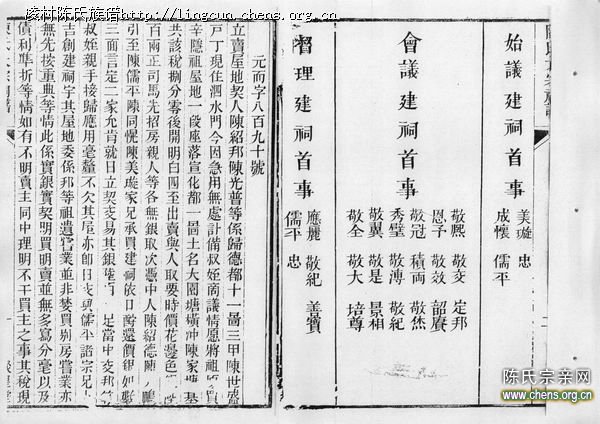 凌村陈氏族谱 http://lingcun.chens.org.cn
始議建祠首事
美璇 忠
成懷 儒平
會議建祠首事
敬熙 敬交 定邦
恩子 敬效 韶賡
敬冠 積兩 敬烋
秀璧 敬溥 敬紀
敬翼 敬是 景相
敬全 敬大 培尊
督理建祠首事
應麗 敬紀 善寶
儒平 忠
元而字八百九十號
立賣屋地契人陳紹邦陳光普等係歸德都十一圖三甲陳世盛
戸丁現住泗水門今因急用無處計備叔姪商議情愿將祖
辛隱祖屋地一段座落宣化都一圖土名大園塘磺冲陳家塘基
共該稅捌分零後開明白四至出賣與人取要時價花邊色
百兩正司馬先招房親人等各無銀取次憑中人陳紹德陳
引至陳儒平陳同懷陳美璇家兄承買建祠依口酧還價銀如數
三面言定二家允肯就日立契交易其銀 足當中支邦
叔姪親手接歸應用毫釐不欠其屋亦卽日交與儒平諸宗兄
吉創建祠宇其屋地委係邦等祖遺嘗業並非婪買别房嘗業亦
無先按重典等情此係實銀實契明買明賣並無多寫分毫以及
債利準折等情如有不明賣主同中理明不干買主之事其稅現
陈氏宗亲网
www.chens.org.cn